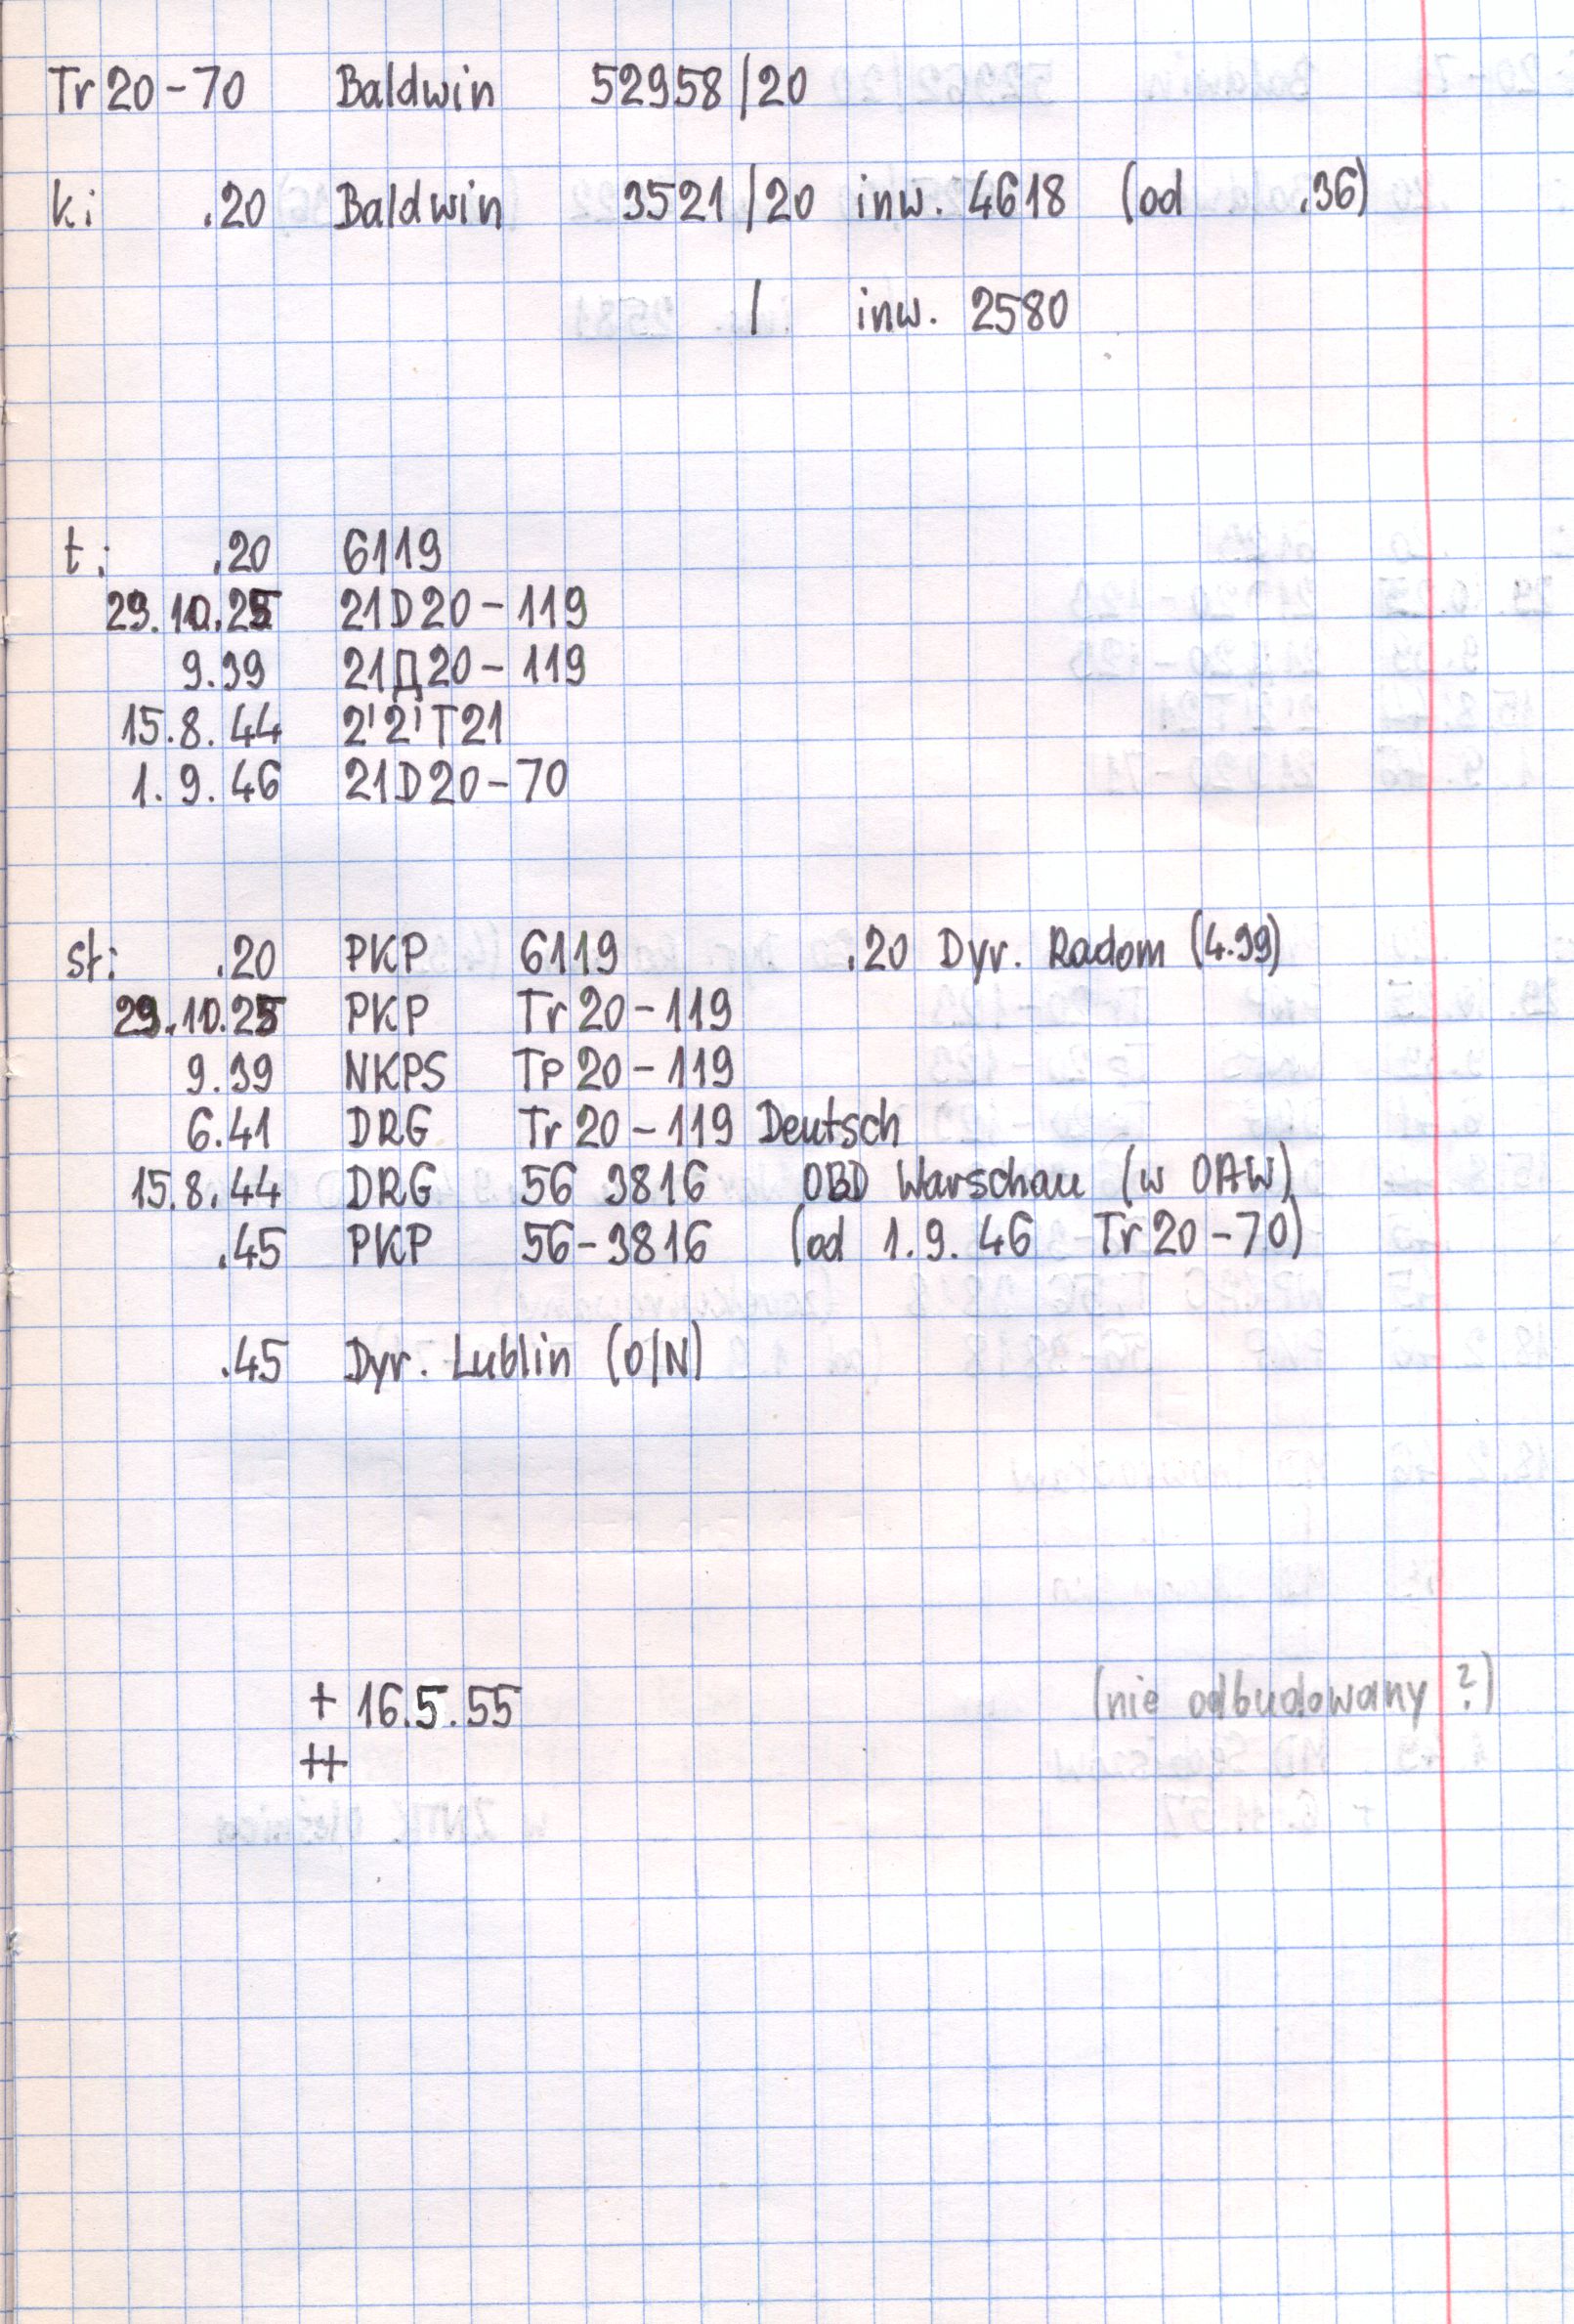 Tr 20-70 Baldwin 52958/20
k: .20 Baldwin 3521/20 inw. 4618 (od .36)
/ inw. 2580
t: .20 6119
29.10.25 21D20-119
9.39 21Д20-119
15.8.44 2'2'T21
1.9.46 21D20-70
st: .20 PKP 6119 .20 Dyr. Radom (4.39)
29.10.25 PKP Tr 20-119
9.39 NKPS Tp 20-119
6.41 DRG Tr 20-119 Deutsch
15.8.44 DRG 56 3816 OBD Warschau (w OAW)
.45 PKP 56-3816 (od 1.9.46 Tr 20-70)
.45 Dyr. Lublin (O/N)
+ 16.5.55 (nie odbudowany ?)
++